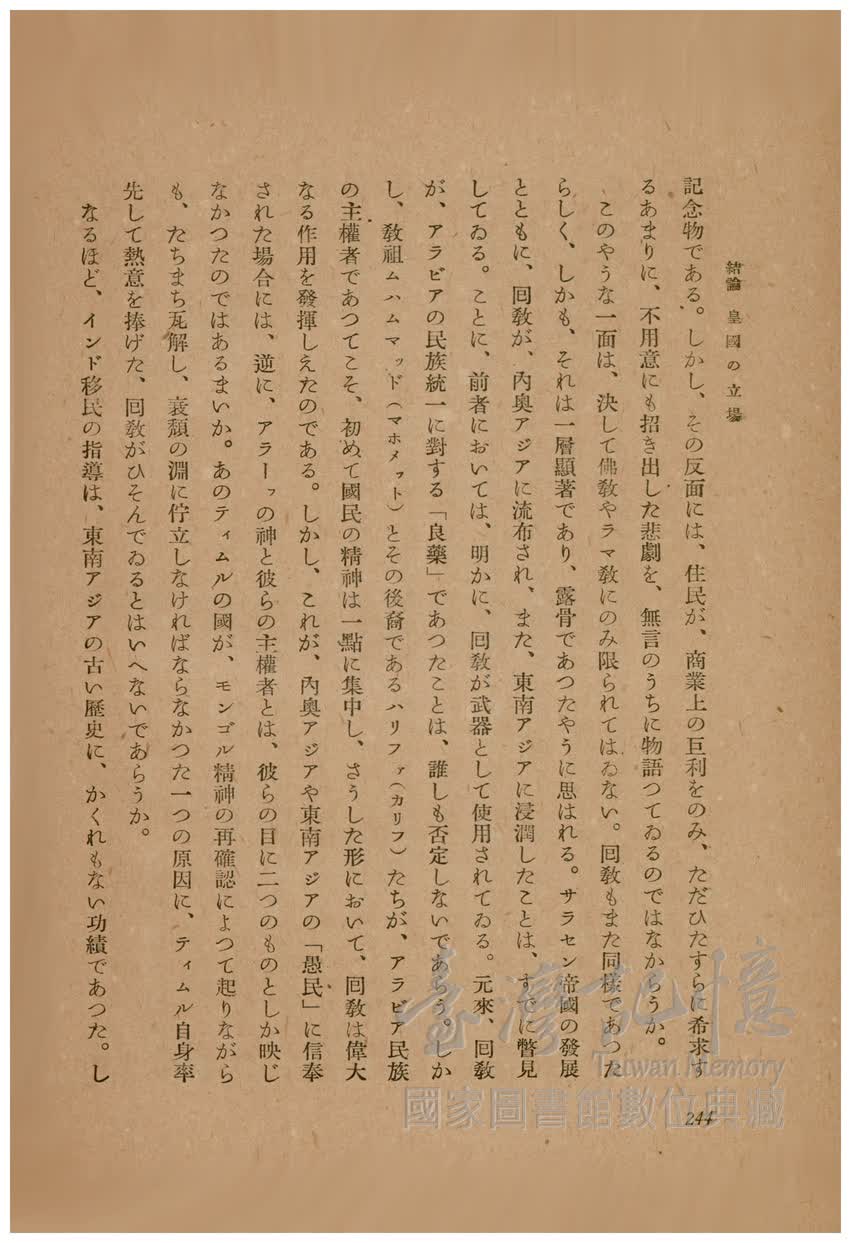 結論 皇國の立場
記念物である。しかし、その反面には、住民が、商業上の巨利をのみ、ただひたすらに希求す
るあまりに、不用意にも招き出した悲劇を、無言のうちに物語つてゐるのではなからうか。
このやうな一面は、決して佛敎やラマ敎にのみ限られてはゐない。回敎もまた同樣であつた
らしく、しかも、それは一層顯著であり、露骨であつたやうに思はれる。サラセン帝國の發展
とともに、回敎が、內奧アジアに流布され、また、東南アジアに浸潤したことは、すでに瞥見
してゐる。ことに、前者においては、明かに、回敎が武器として使用されてゐる。元來、回敎
が、アラビアの民族統一に對する「良藥」であつたことは、誰しも否定しないであらう。しか
し、敎祖ムハムマッド(マホメット)とその後裔であるハリファ(カリフ)たちが、アラビア民族
の主權者であつてこそ、初めて國民の精神は一點に集中し、さうした形において、回敎は偉大
なる作用を發揮しえたのである。しかし、これが、內奧アジアや東南アジアの「愚民」に信奉
された場合には、逆に、アラーッの神と彼らの主權者とは、彼らの目に二つのものとしか映じ
なかつたのではあるまいか。あのティムルの國が、モンゴル精神の再確認によつて起りながら
も、たちまち瓦解し、衰頽の淵に佇立しなければならなかつた一つの原因に、ティムル自身率
先して熱意を捧げた、回敎がひそんでゐるとはいへないであらうか。
なるほど、インド移民の指導は、東南アジアの古い歷史に、かくれもない功績であつた。し
244
臺灣記憶
Taiwan Memory
國家圖書館數位典藏